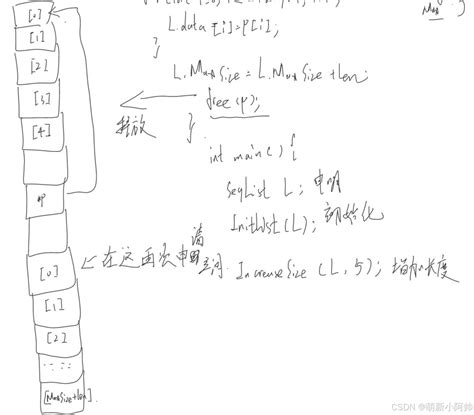 [0]
[1]
[2]
[3]
[4]
*p
[0]
[1]
[2]
[MaxSize+len]
L.data[i]=p[i];
}
L.MaxSize = L.MaxSize+len;
free(p);
释放
}
int main() {
SeqList L; 申明
InitList(L); 初始化
在这再次申请空间
IncreaseSize (L,5); 增加长度
CSDN @萌新小阿帅